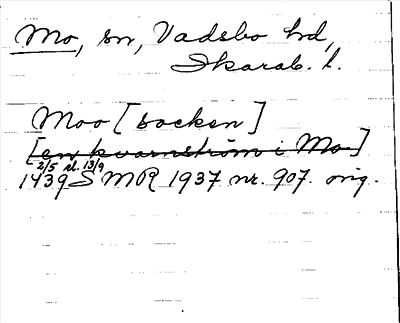 Mo, sn, Vadsbo hd,
Skarab. l.
Moo [socken]
[en kvarnström i Mo]
2/5 el. 13/9
1439 S MOR 1937 nr. 907. orig.